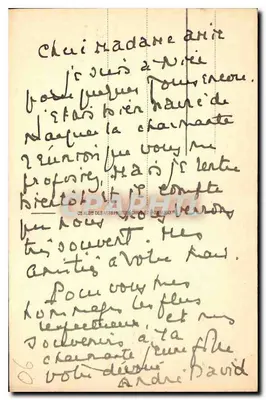 Chère Madame amie
je suis à Nice
pour quelques jours encore.
j'étais bien navré de
manquer la charmante
réunion que vous me
proposiez, mais je rentre
bientôt et je compte
que nous nous verrons
très souvent. Mes
amitiés à votre mari.
Pour vous mes
hommages les plus
respectueux, et mes
souvenirs à la
charmante jeune fille
votre dévoué
André David